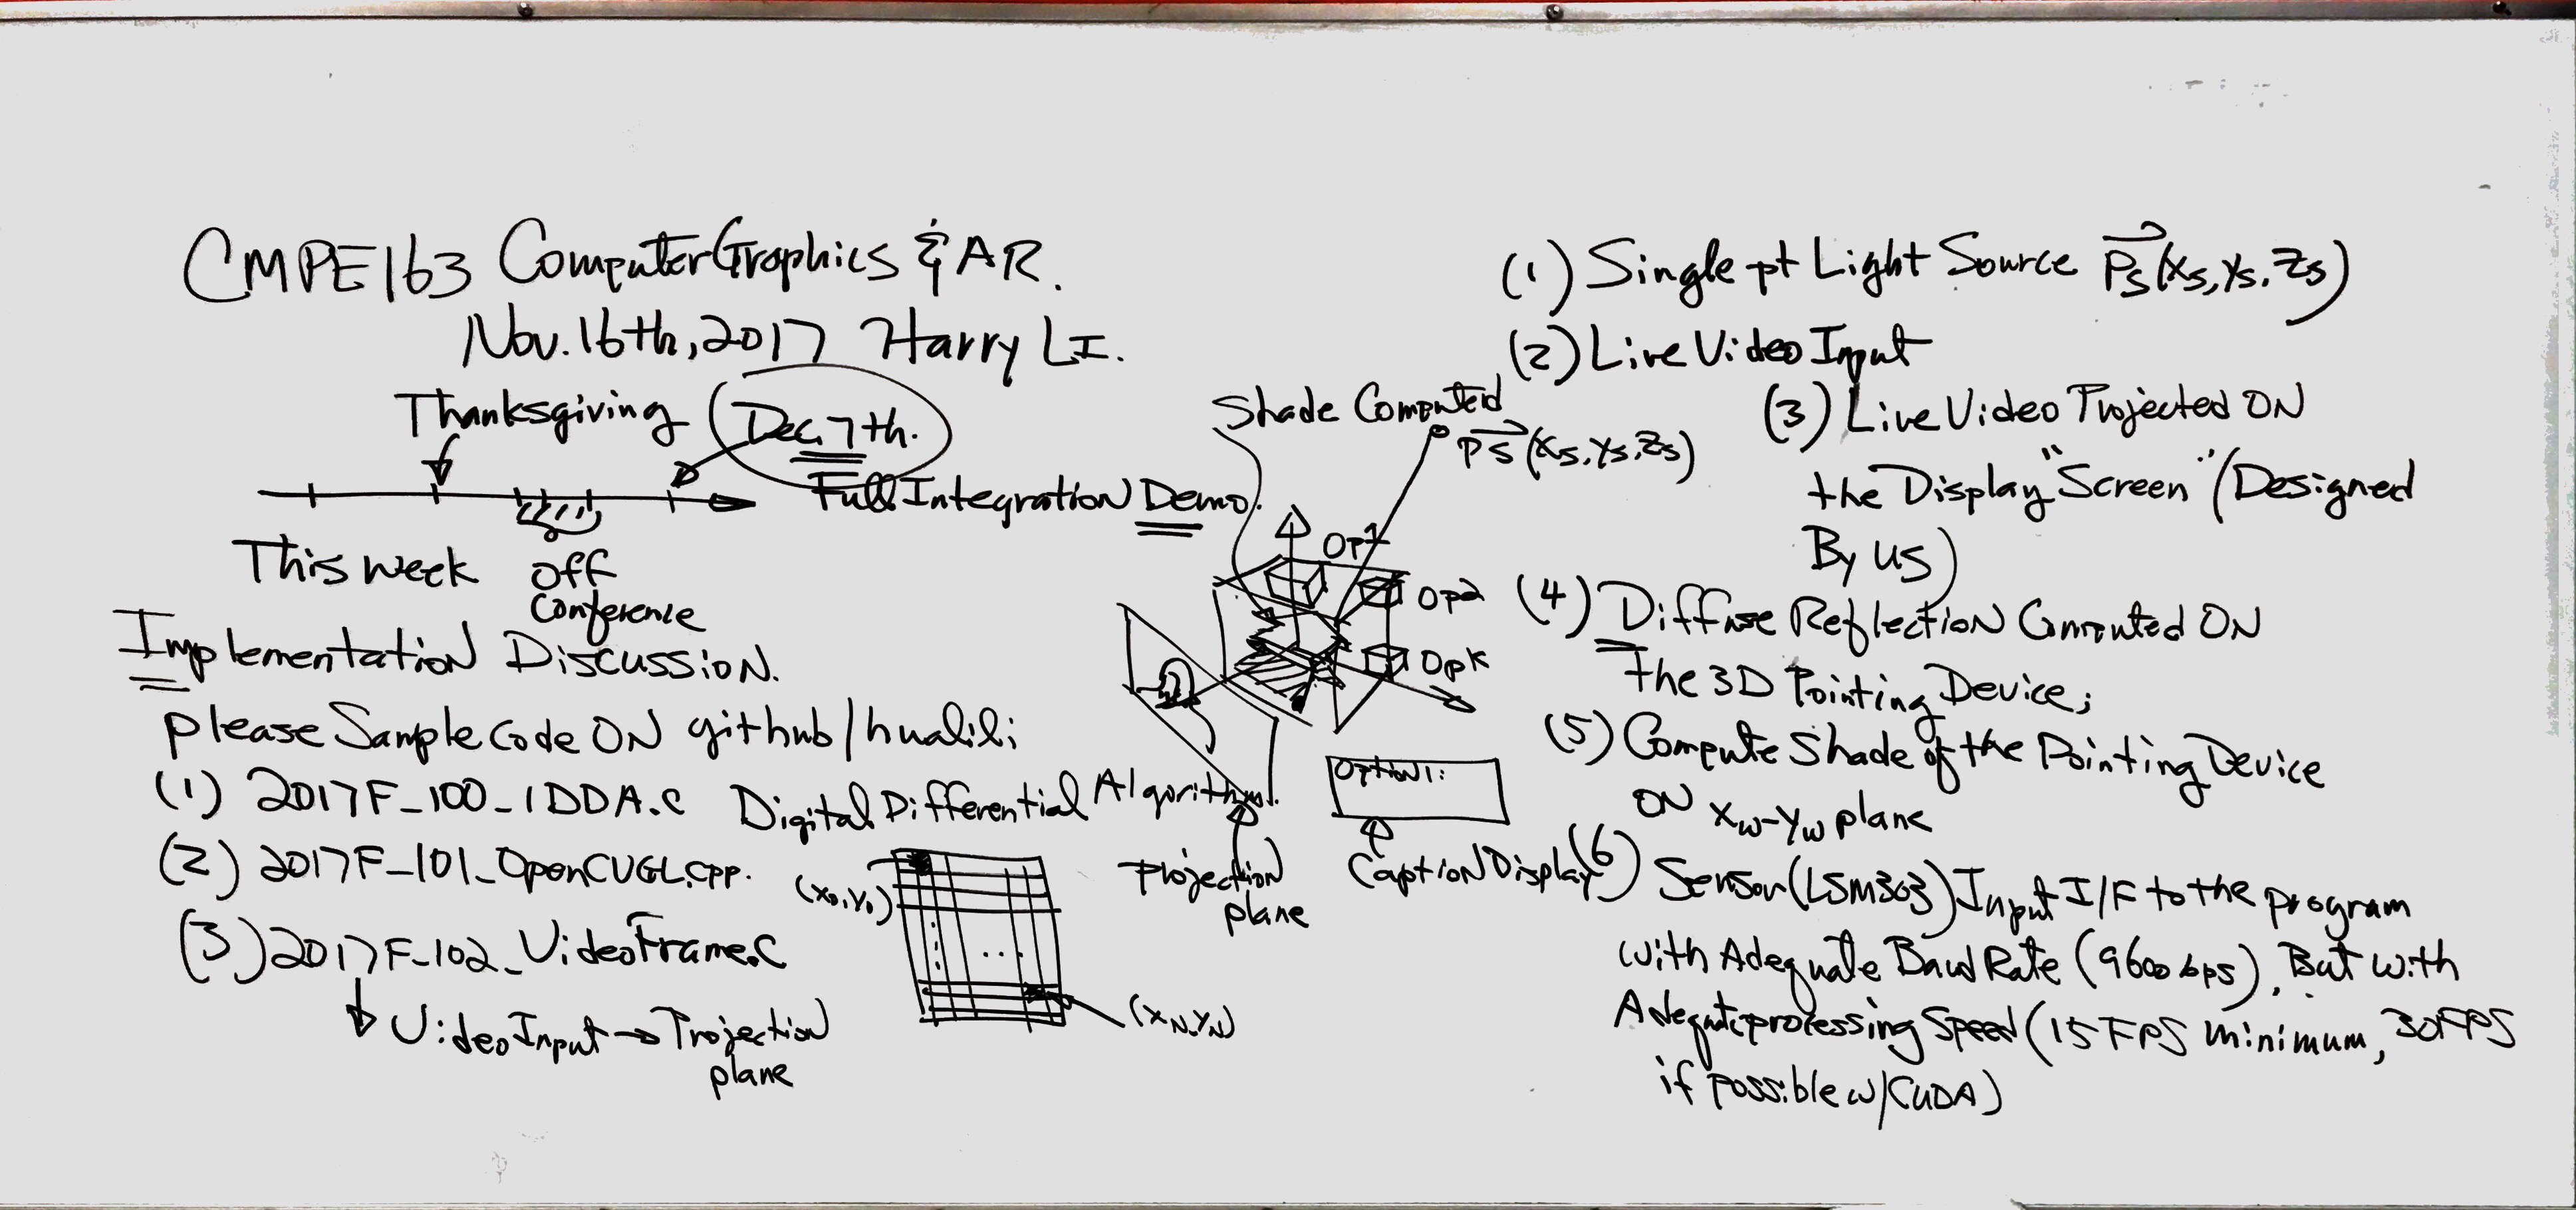 CMPE163 Computer Graphics & AR.
Nov. 16th, 2017 Harry LI.
Thanksgiving
Dec. 7th.
Full Integration Demo.
This week
off
Conference
Implementation Discussion.
please Sample Code ON github/hualili
(1) 2017F_100_1DDA.c Digital Differential Algorithm.
(2) 2017F_101_OpenCVGL.cpp.
(3) 2017F_102_VideoFrame.c
Video Input → Projection
plane
(x0,y0)
...
(xN,yN)
Shade Computed
Ps(xs,ys,zs)
Op1
Op2
Opk
Option1:
Projection
plane
Caption Display
(1) Single pt Light Source Ps(xs,ys,zs)
(2) Live Video Input
(3) Live Video Projected ON
the Display "Screen" (Designed
By us)
(4) Diffuse Reflection Computed ON
the 3D Pointing Device;
(5) Compute Shade of the Pointing Device
ON xw-yw plane
(6) Sensor (LSM303) Input I/F to the program
with Adequate Baud Rate (9600 bps), But with
Adequate processing Speed (15 FPS minimum, 30FPS
if possible w/CUDA)